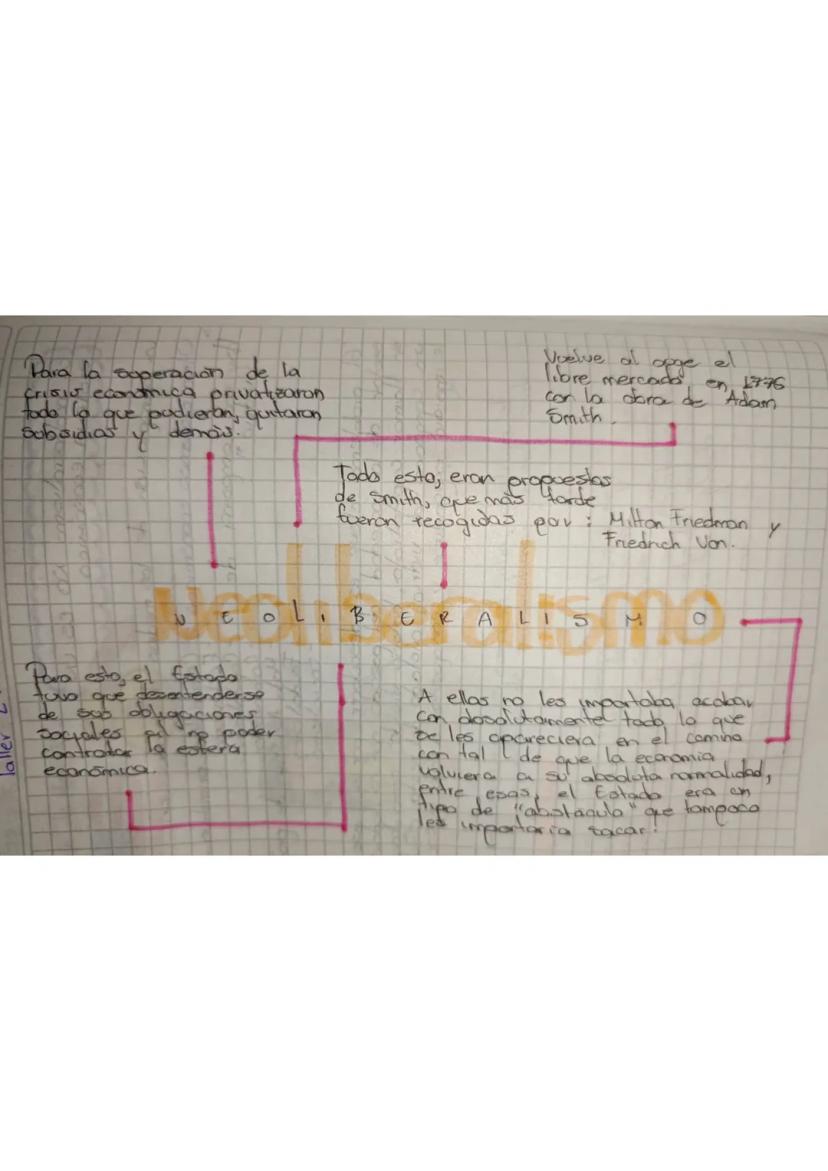 Para la superación de la
crisis económica privatizaron
todo lo que pudieron, quitaron
subsidios y demás.
Vuelve al apoge el
libre mercado, en 1776
con la obra de Adam
Smith.
Todo esto, eran propuestas
de Smith, que más tarde
fueron recogidas por: Milton Friedman y
Friedrich Von.
Neoliberalismo
NEOLIBERALISMO
Para esto, el Estado
tuvo que desentenderse
de sus obligaciones
sociales al no poder
controlar la esfera
económica.
A ellos no les importaba acabar
con absolutamente todo lo que
se les apareciera en el camino
con tal de que la economía
volviera a su absoluta normalidad,
entre esas, el Estado era un
tipo de "obstáculo" que tampoco
les importaría sacar.
Taller